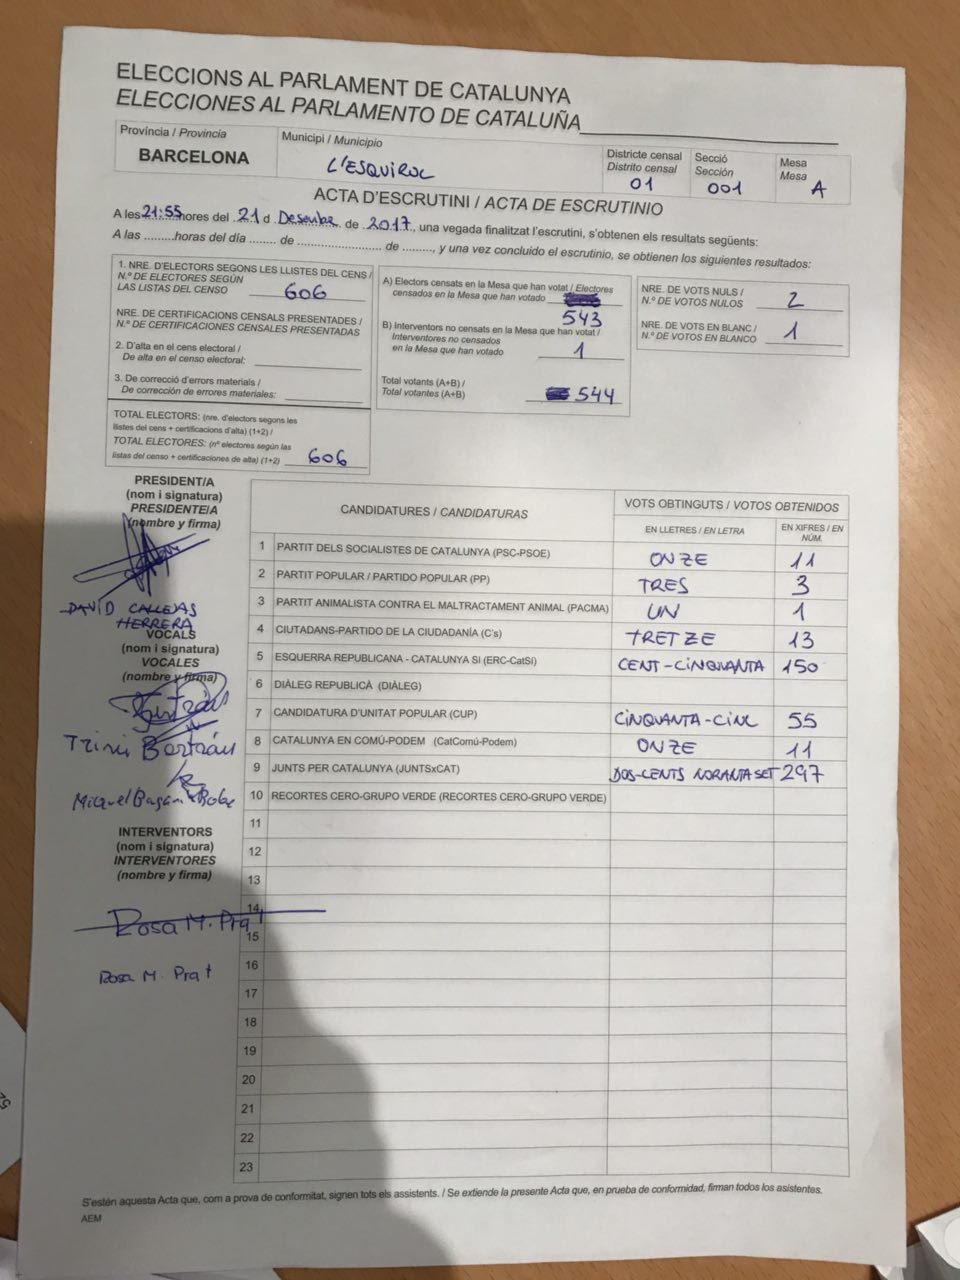 ELECCIONS AL PARLAMENT DE CATALUNYA
ELECCIONES AL PARLAMENTO DE CATALUÑA
Província / Provincia
BARCELONA
Municipi / Municipio
L'ESQUIROL
Districte censal
Distrito censal
01
Secció
Sección
001
Mesa
Mesa
A
ACTA D'ESCRUTINI / ACTA DE ESCRUTINIO
A les 21:55 hores del 21 d Desembre de 2017, una vegada finalitzat l'escrutini, s'obtenen els resultats següents:
A las .........horas del día ........ de ........................ de ........, y una vez concluido el escrutinio, se obtienen los siguientes resultados:
1. NRE. D'ELECTORS SEGONS LES LLISTES DEL CENS /
N.º DE ELECTORES SEGÚN
LAS LISTAS DEL CENSO 606
NRE. DE CERTIFICACIONS CENSALS PRESENTADES /
N.º DE CERTIFICACIONES CENSALES PRESENTADAS
2. D'alta en el cens electoral /
De alta en el censo electoral:
3. De correcció d'errors materials /
De corrección de errores materiales:
TOTAL ELECTORS: (nre. d'electors segons les
llistes del cens + certificacions d'alta) (1+2) /
TOTAL ELECTORES: (nº electores según las
listas del censo + certificaciones de alta) (1+2) 606
A) Electors censats en la Mesa que han votat / Electores
censados en la Mesa que han votado
543
B) Interventors no censats en la Mesa que han votat /
Interventores no censados
en la Mesa que han votado 1
Total votants (A+B) /
Total votantes (A+B) 544
NRE. DE VOTS NULS /
N.º DE VOTOS NULOS 2
NRE. DE VOTS EN BLANC /
N.º DE VOTOS EN BLANCO 1
PRESIDENT/A
(nom i signatura)
PRESIDENTE/A
(nombre y firma)
DAVID CALLEJAS
HERRERA
VOCALS
(nom i signatura)
VOCALES
(nombre y firma)
Trini Bertrán
Miquel
INTERVENTORS
(nom i signatura)
INTERVENTORES
(nombre y firma)
Rosa M. Prat
Rosa M. Prat
CANDIDATURES / CANDIDATURAS
VOTS OBTINGUTS / VOTOS OBTENIDOS
EN LLETRES / EN LETRA
EN XIFRES / EN
NÚM.
1 PARTIT DELS SOCIALISTES DE CATALUNYA (PSC-PSOE) ONZE 11
2 PARTIT POPULAR / PARTIDO POPULAR (PP) TRES 3
3 PARTIT ANIMALISTA CONTRA EL MALTRACTAMENT ANIMAL (PACMA) UN 1
4 CIUTADANS-PARTIDO DE LA CIUDADANÍA (C's) TRETZE 13
5 ESQUERRA REPUBLICANA - CATALUNYA SI (ERC-CatSí) CENT-CINQUANTA 150
6 DIÀLEG REPUBLICÀ (DIÀLEG)
7 CANDIDATURA D'UNITAT POPULAR (CUP) CINQUANTA-CINC 55
8 CATALUNYA EN COMÚ-PODEM (CatComú-Podem) ONZE 11
9 JUNTS PER CATALUNYA (JUNTSxCAT) DOS-CENTS NORANTA SET 297
10 RECORTES CERO-GRUPO VERDE (RECORTES CERO-GRUPO VERDE)
11
12
13
14
15
16
17
18
19
20
21
22
23
S'estén aquesta Acta que, com a prova de conformitat, signen tots els assistents. / Se extiende la presente Acta que, en prueba de conformidad, firman todos los asistentes.
AEM
52